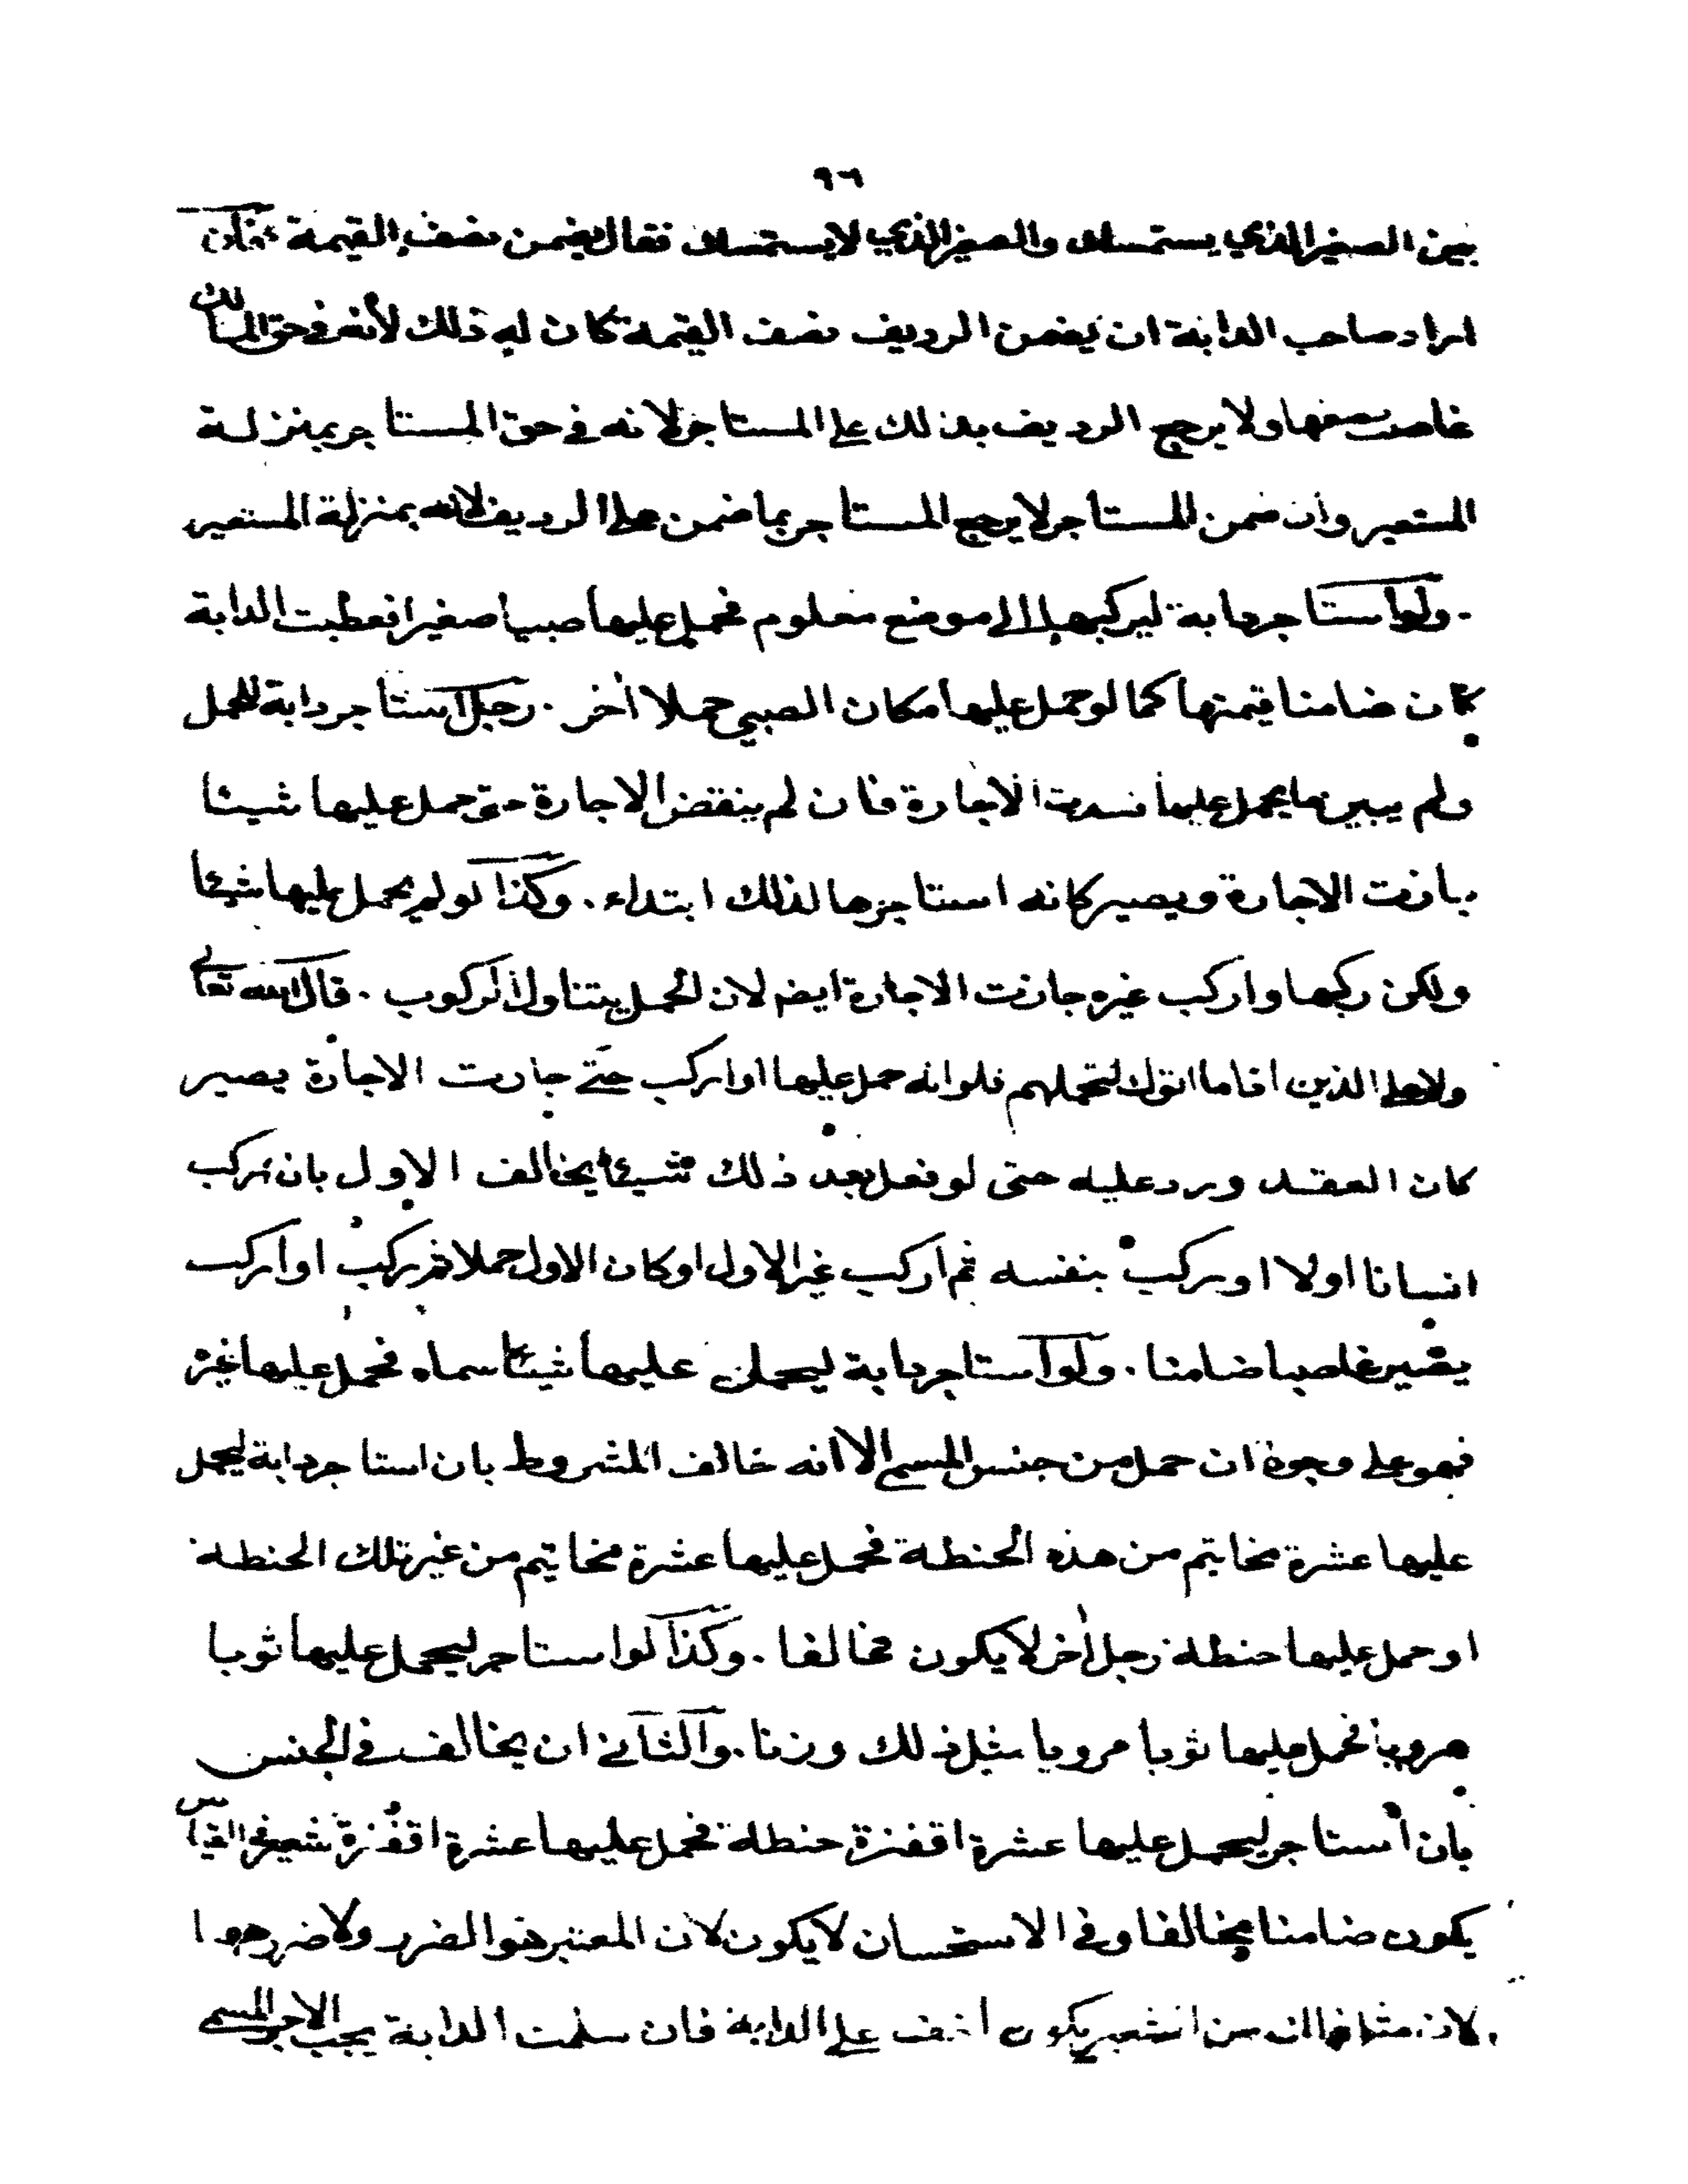 ٩٦
بين الصغير الذي يستمسك والصغير الذي لا يستمسك فقال يضمن نصف القيمة فان
اراد صاحب الدابة ان يضمن الرديف نصف القيمة كان له ذلك لأنه في حق المالك
غاصب نصفها ولا يرجع الرديف بذلك على المستاجر لانه في حق المستاجر بمنزلة
المستعير وان ضمن المستاجر لا يرجع المستاجر بما ضمن على الرديف لانه بمنزلة المستعير
. ولو استاجر دابة ليركبها الى موضع معلوم فحمل عليها صبيا صغيرا فعطبت الدابة
كان ضامنا قيمتها كما لو حمل عليها مكان الصبي حملا اخر . رجل استاجر دابة للحمل
ولم يبين ما يحمل عليها فسدت الاجارة فان لم ينقض الاجارة حتى حمل عليها شيئا
جازت الاجارة ويصير كانه استاجرها لذلك ابتداء . وكذا لو لم يحمل عليها شيئا
ولكن ركبها واركب غيره جازت الاجارة ايضم لان الحمل يتناول الركوب . قال الله تعالى
ولا على الذين اذا ما اتوك لتحملهم فلو انه حمل عليها او اركب حتى جازت الاجارة يصير
كان العقد ورد عليه حتى لو فعل بعد ذلك شيئا يخالف الاول بان يركب
انسانا اولا او يركب بنفسه ثم اركب غير الاول او كان الاول حملا ثم يركب او اركب
يصير غاصبا ضامنا . ولو استاجر دابة ليحمل عليها شيئا سماه فحمل عليها غيره
فهو على وجوه ان حمل من جنس المسمى الا انه خالف المشروط بان استاجر دابة ليحمل
عليها عشرة مخاتيم من هذه الحنطة فحمل عليها عشرة مخاتيم من غير تلك الحنطة
او حمل عليها حنطة رجل اخر لا يكون مخالفا . وكذا لو استاجر ليحمل عليها ثوبا
هرويا فحمل عليها ثوبا مرويا مثل ذلك وزنا . والثاني ان يخالف في الجنس
بان استاجر ليحمل عليها عشرة اقفزة حنطة فحمل عليها عشرة اقفزة شعير في القياس
يكون ضامنا مخالفا وفي الاستحسان لا يكون لان المعتبر هو الضرر ولا ضرر هنا
لان مثل ذلك من الشعير يكون اخف على الدابة فان سلمت الدابة يجب الاجر المسمى